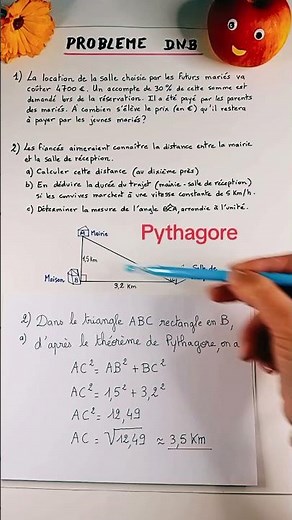 PROBLEME DNB
1) La location de la salle choisie par les futurs mariés va
coûter 4700 €. Un acompte de 30% de cette somme est
demandé lors de la réservation. Il a été payé par les parents
des mariés. A combien s'élève le prix (en €) qu'il restera
à payer par les jeunes mariés?
2) Les fiancés aimeraient connaître la distance entre la mairie
et la salle de réception.
a) Calculer cette distance (au dixième près)
b) En déduire la durée du trajet (mairie - salle de réception)
si les convives marchent à une vitesse constante de 5 Km/h.
c) Déterminer la mesure de l'angle BCA, arrondie à l'unité.
A Mairie
Pythagore
1,5 km
Salle de
Maison B
3,2 Km
2) Dans le triangle ABC rectangle en B,
a) d'après le théorème de Pythagore, on a
AC² = AB² + BC²
AC² = 1,5² + 3,2²
AC² = 12,49
AC = √12,49 ≈ 3,5 Km